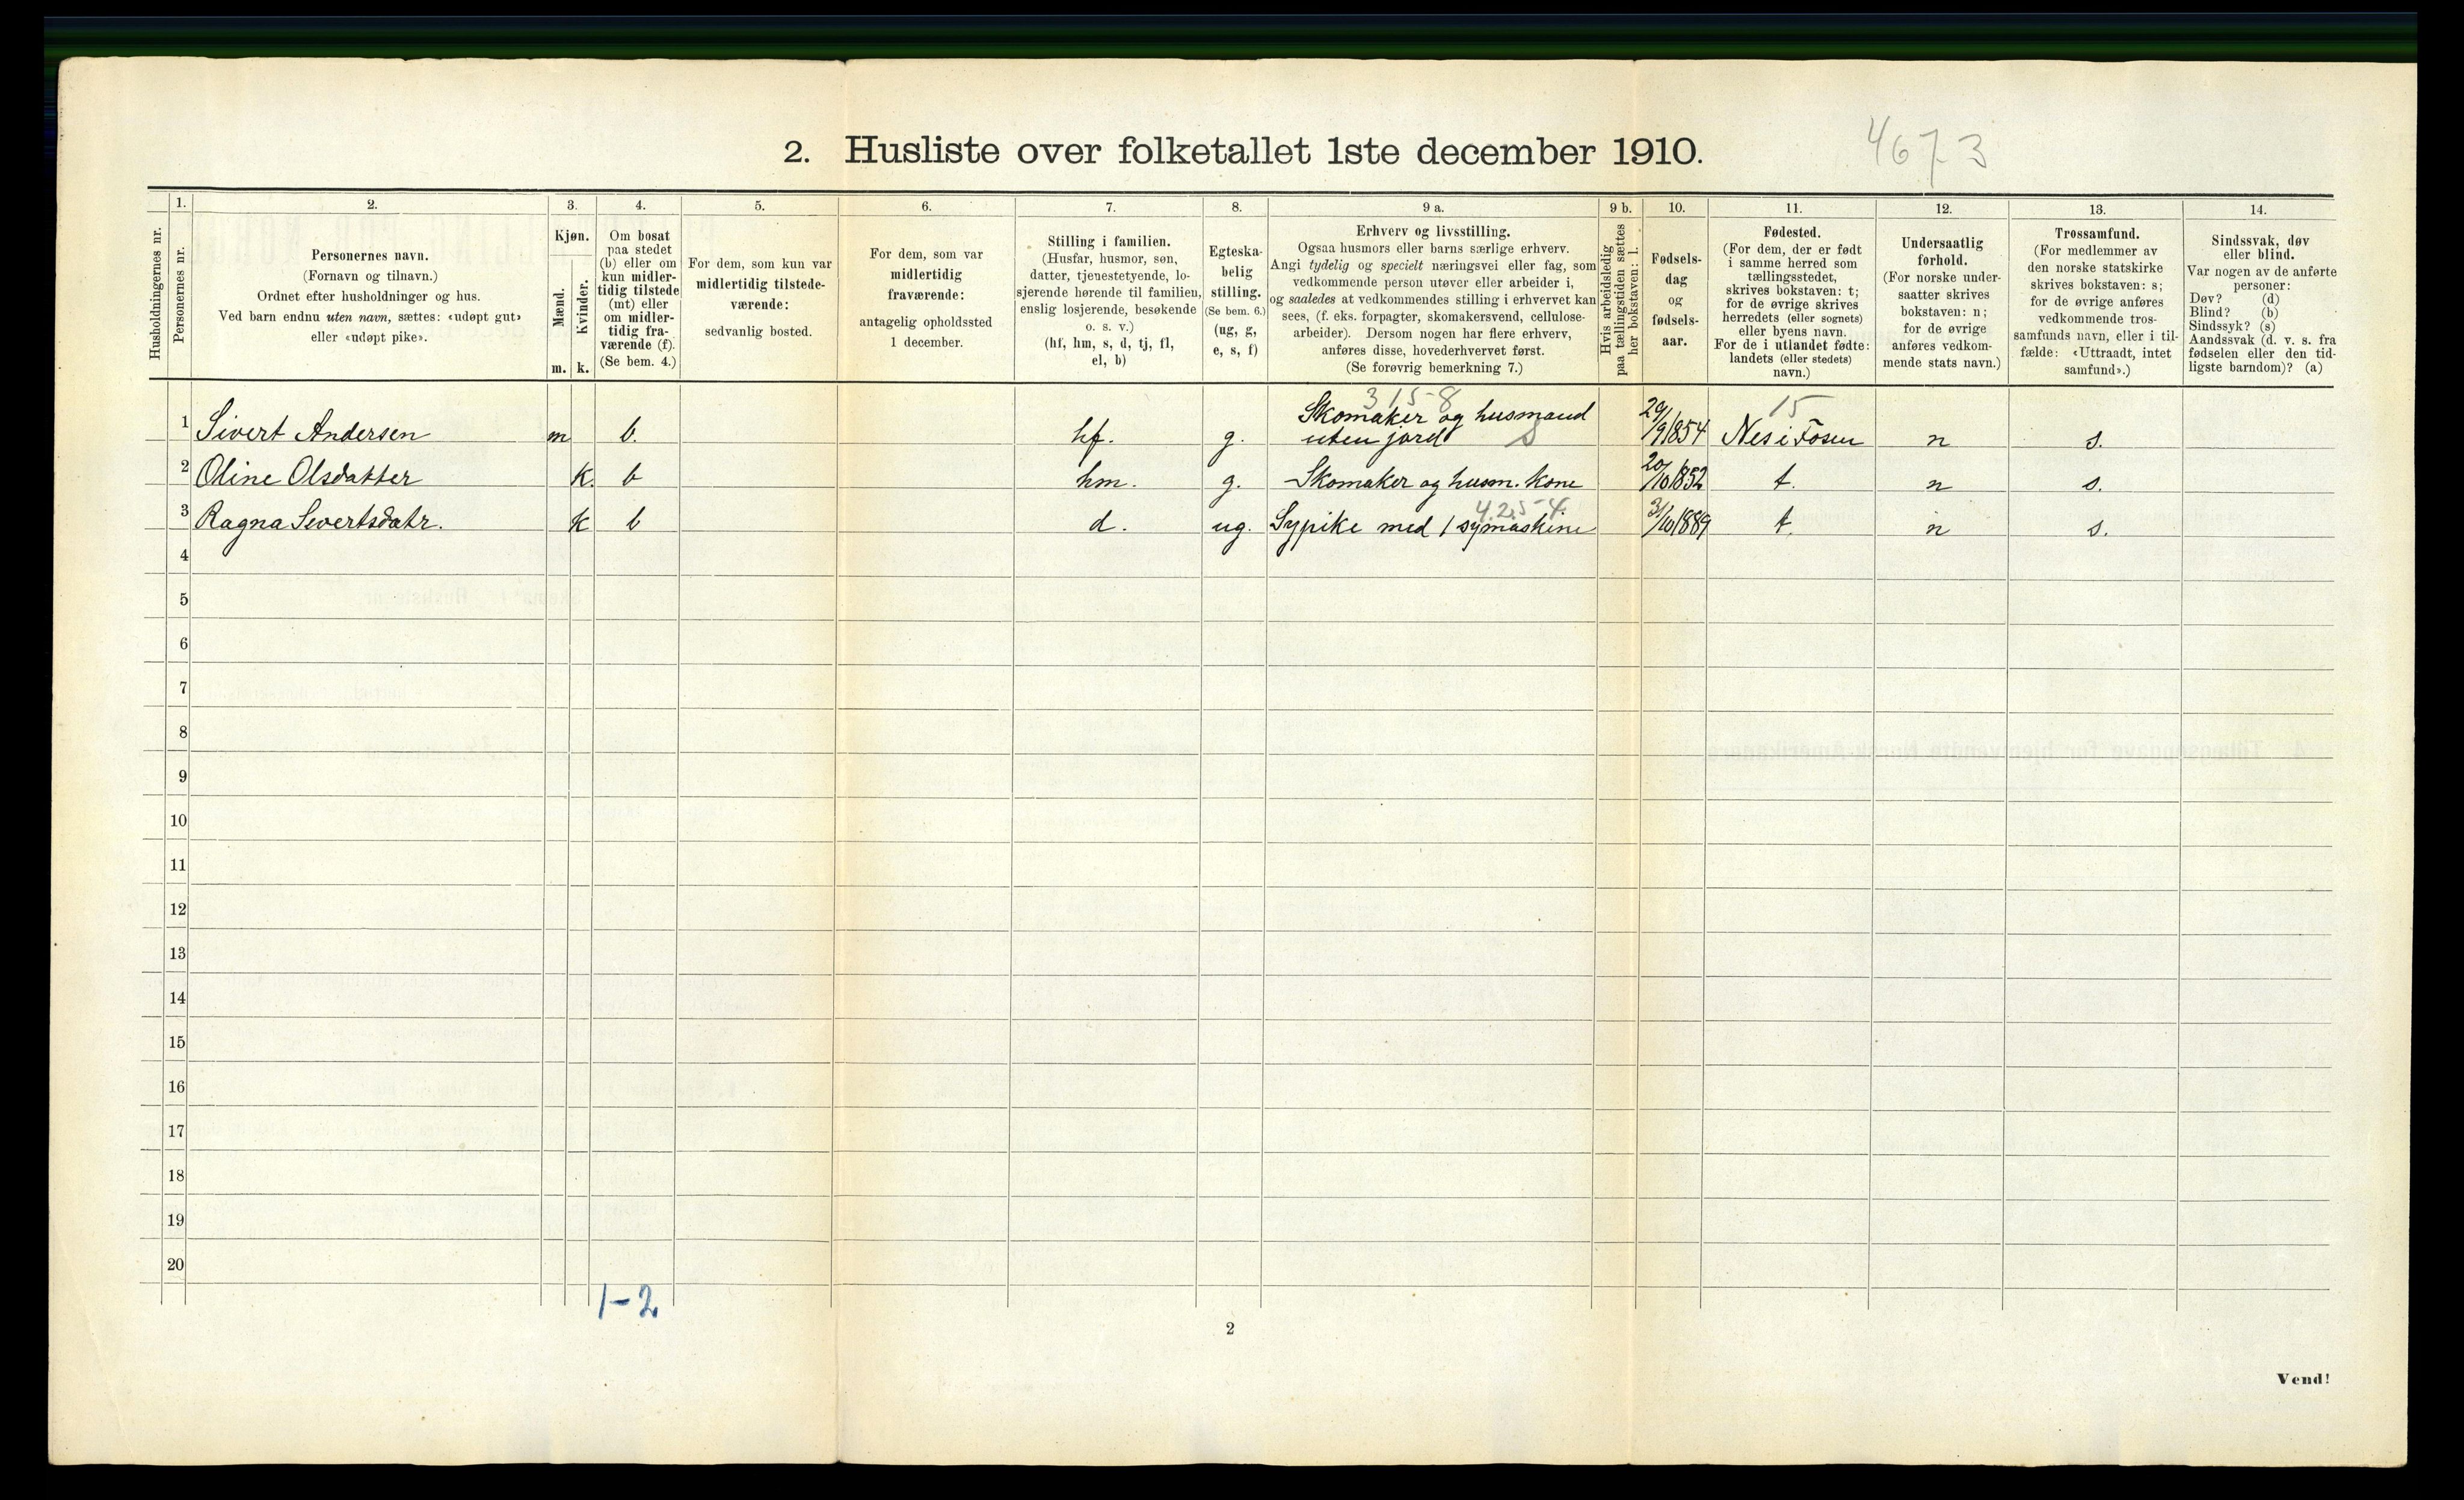 2. Husliste over folketallet 1ste december 1910.
4673
Husholdningernes nr.
1.
Personernes nr.
2.
Personernes navn.
(Fornavn og tilnavn.)
Ordnet efter husholdninger og hus.
Ved barn endnu uten navn, sættes: «udøpt gut»
eller «udøpt pike».
3.
Kjøn.
Mænd.
Kvinder.
m. k.
4.
Om bosat
paa stedet
(b) eller om
kun midler-
tidig tilstede
(mt) eller
om midler-
tidig fra-
værende (f).
(Se bem. 4.)
5.
For dem, som kun var
midlertidig tilstede-
værende:
sedvanlig bosted.
6.
For dem, som var
midlertidig
fraværende:
antagelig opholdssted
1 december.
7.
Stilling i familien.
(Husfar, husmor, søn,
datter, tjenestetyende, lo-
sjerende hørende til familien,
enslig losjerende, besøkende
o. s. v.)
(hf, hm, s, d, tj, fl,
el, b)
8.
Egteska-
belig
stilling.
(Se bem. 6.)
(ug, g,
e, s, f)
9 a.
Erhverv og livsstilling.
Ogsaa husmors eller barns særlige erhverv.
Angi tydelig og specielt næringsvei eller fag, som
vedkommende person utøver eller arbeider i,
og saaledes at vedkommendes stilling i erhvervet kan
sees, (f. eks. forpagter, skomakersvend, cellulose-
arbeider). Dersom nogen har flere erhverv,
anføres disse, hovederhvervet først.
(Se forøvrig bemerkning 7.)
9 b.
Hvis arbeidsledig
paa tællingstiden sættes
her bokstaven: l.
10.
Fødsels-
dag
og
fødsels-
aar.
11.
Fødested.
(For dem, der er født
i samme herred som
tællingsstedet,
skrives bokstaven: t;
for de øvrige skrives
herredets (eller sognets)
eller byens navn.
For de i utlandet fødte:
landets (eller stedets)
navn.)
12.
Undersaatlig
forhold.
(For norske under-
saatter skrives
bokstaven: n;
for de øvrige
anføres vedkom-
mende stats navn.)
13.
Trossamfund.
(For medlemmer av
den norske statskirke
skrives bokstaven: s;
for de øvrige anføres
vedkommende tros-
samfunds navn, eller i til-
fælde: «Uttraadt, intet
samfund».)
14.
Sindssvak, døv
eller blind.
Var nogen av de anførte
personer:
Døv? (d)
Blind? (b)
Sindssyk? (s)
Aandssvak (d. v. s. fra
fødselen eller den tid-
ligste barndom)? (a)
315-8
15
1 Sivert Andersen m b. hf. g. Skomaker og husmand
uten jord S 29/9 1854 Nes i Fosen n s.
2 Oline Olsdatter k. b hm. g. Skomaker og husm. kone 20/10 1852 t. n s.
4.25-4
3 Ragna Sivertsdatr. k b d. ug. Sypike med 1 symaskine 31/10 1889 t. n s.
4
5
6
7
8
9
10
11
12
13
14
15
16
17
18
19
20
1-2
2
Vend!